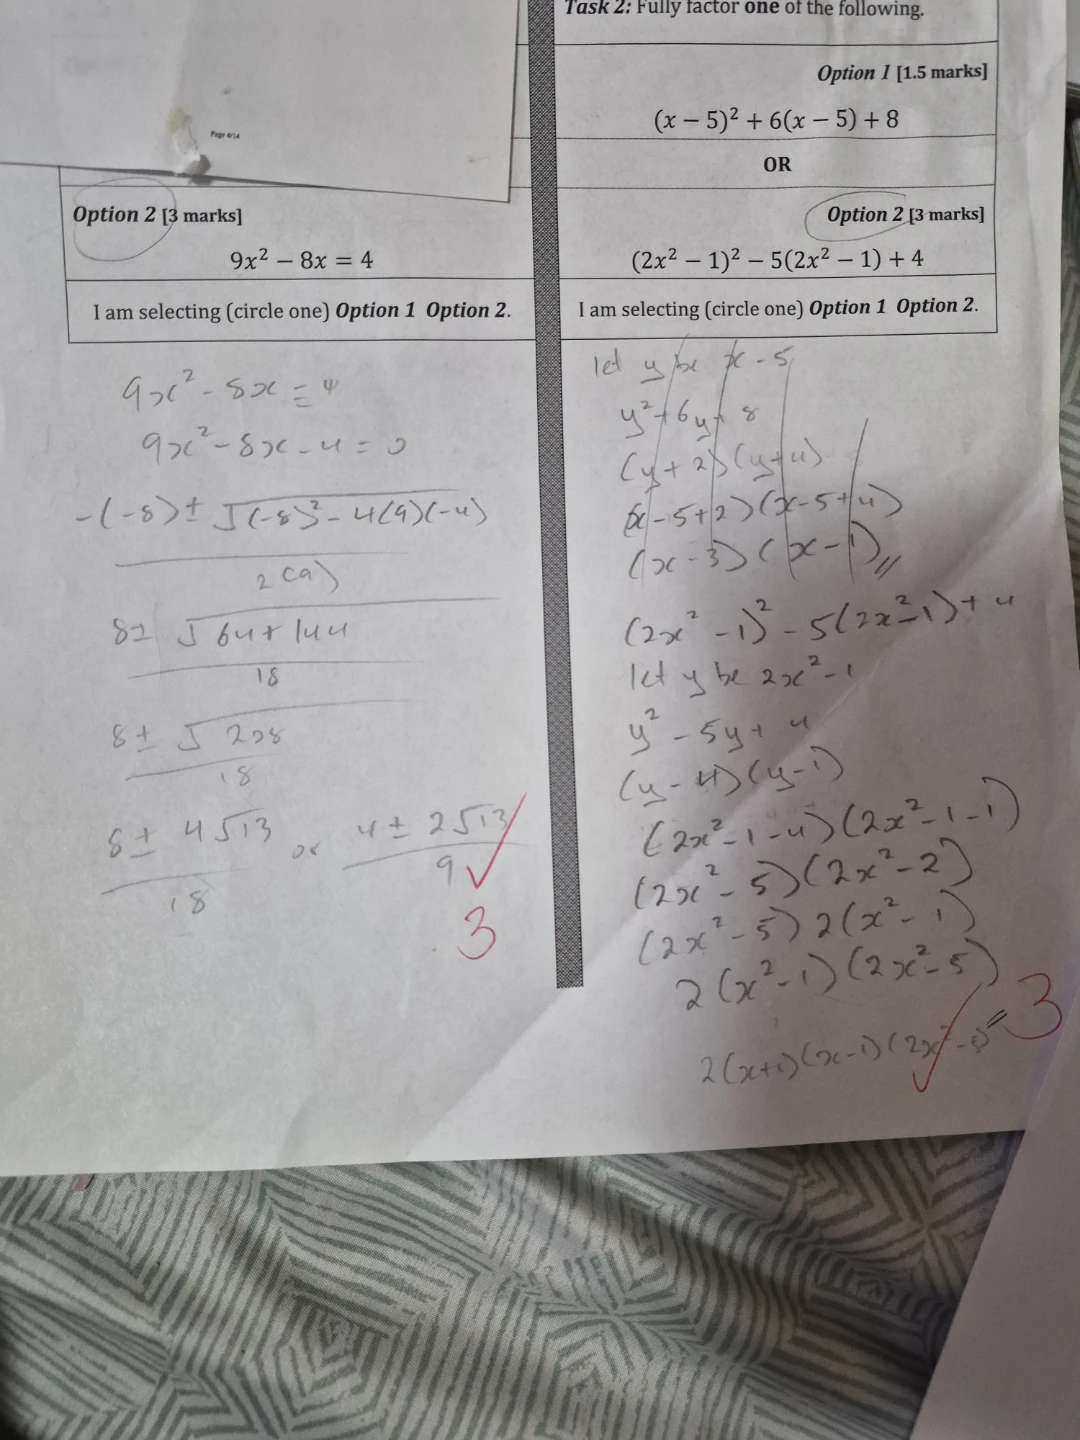 Page 4/14
Option 2 [3 marks]
9x² − 8x = 4
I am selecting (circle one) Option 1 Option 2.
9x² - 8x = 4
9x² - 8x - 4 = 0
-(-8) ± √(-8)² - 4(9)(-4)
2(9)
8± √64 + 144
18
8 ± √208
18
8 ± 4√13 or 4 ± 2√13
18 9
3
Task 2: Fully factor one of the following.
Option 1 [1.5 marks]
(x − 5)² + 6(x − 5) + 8
OR
Option 2 [3 marks]
(2x² − 1)² − 5(2x² − 1) + 4
I am selecting (circle one) Option 1 Option 2.
let y be x - 5
y² + 6y + 8
(y + 2)(y + 4)
(x - 5 + 2)(x - 5 + 4)
(x - 3)(x - 1)
(2x² - 1)² - 5(2x² - 1) + 4
let y be 2x² - 1
y² - 5y + 4
(y - 4)(y - 1)
(2x² - 1 - 4)(2x² - 1 - 1)
(2x² - 5)(2x² - 2)
(2x² - 5) 2(x² - 1)
2(x² - 1)(2x² - 5)
2(x+1)(x-1)(2x² - 5)
3